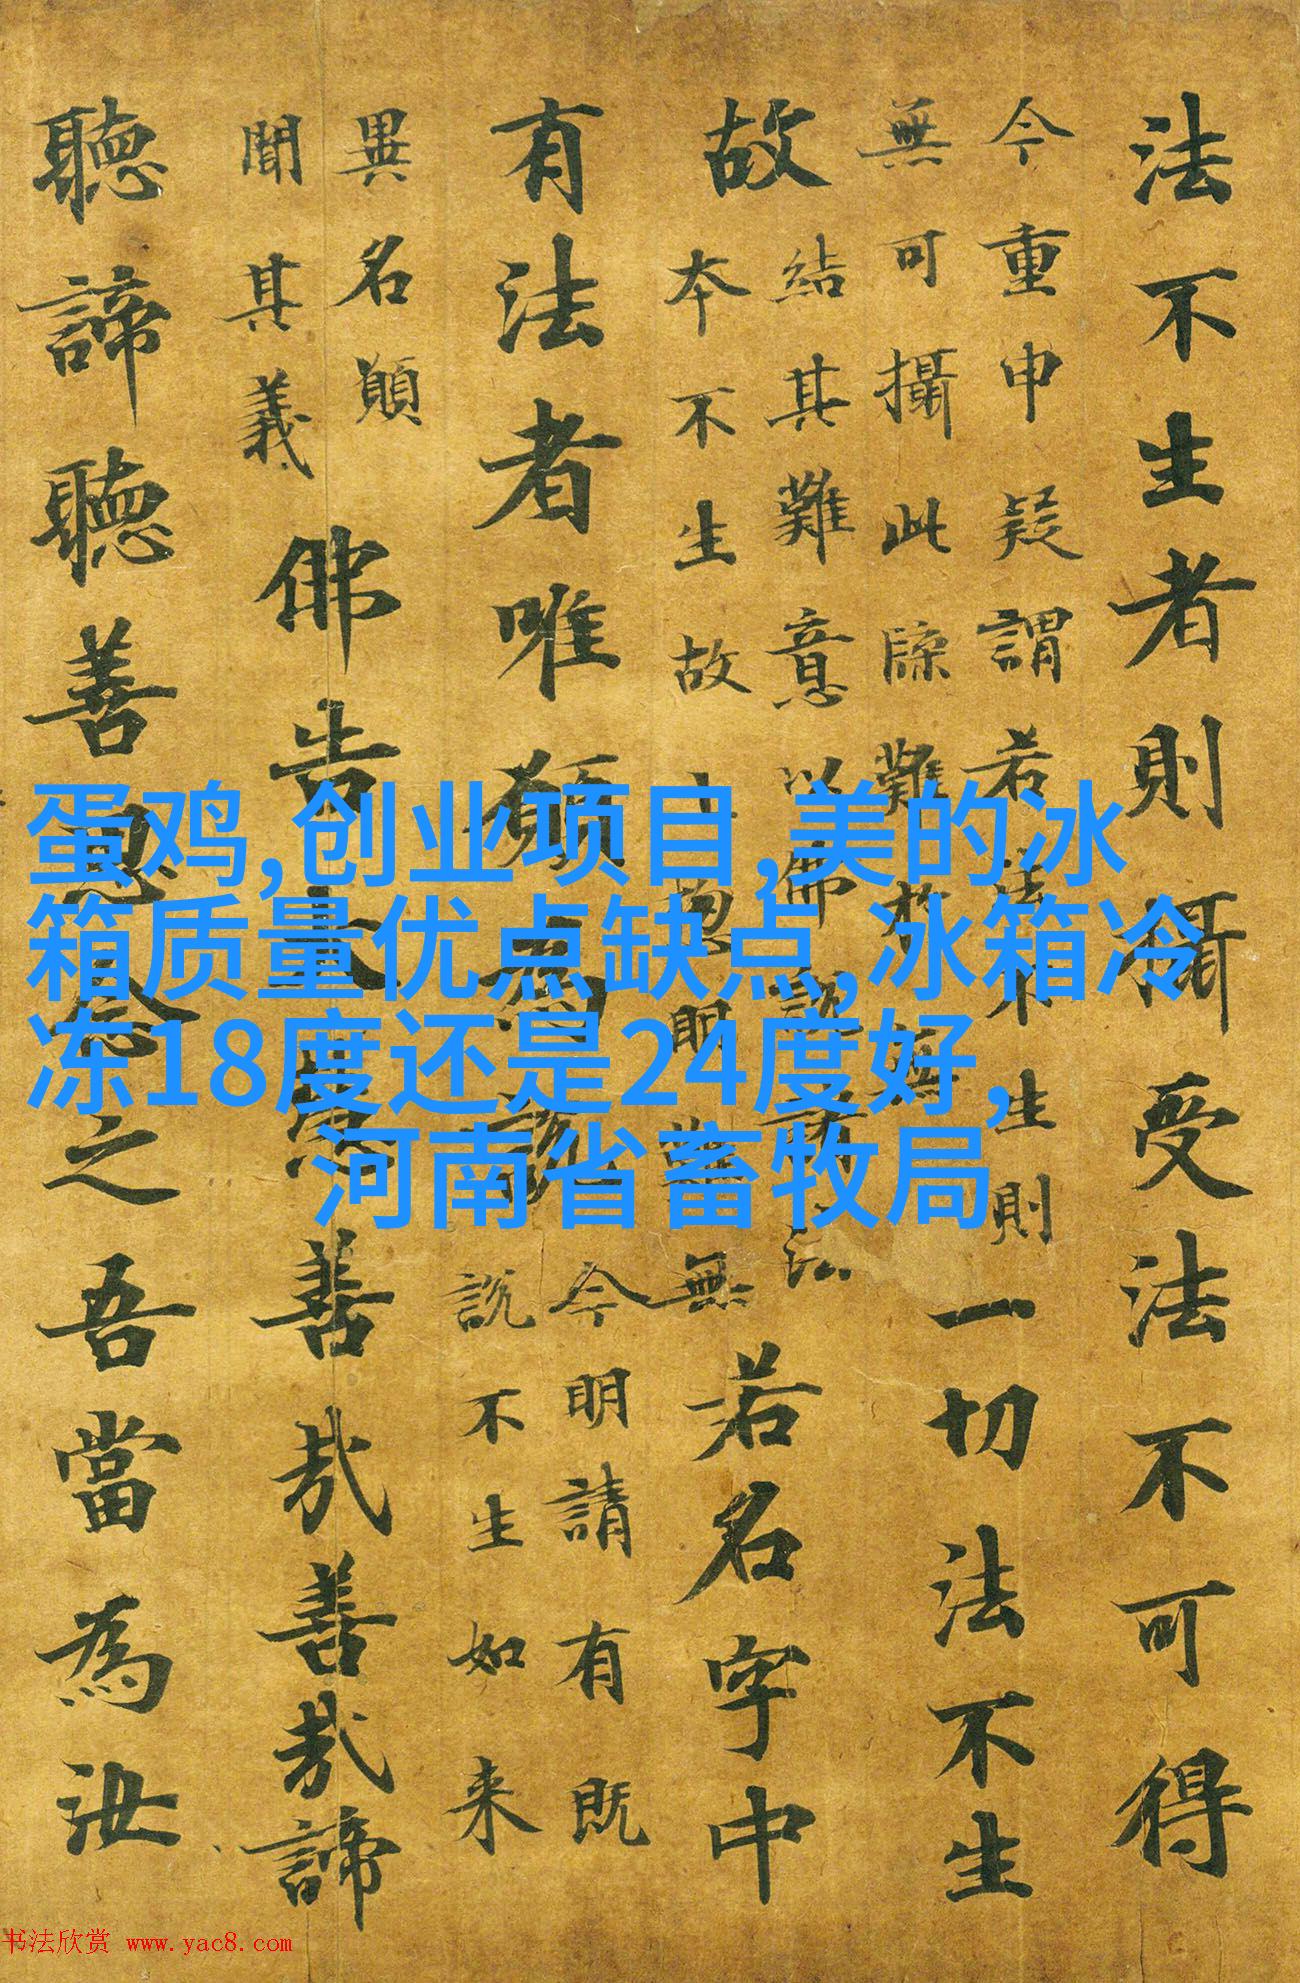 法不生者則攝受法不可得
今重申疑謂若法不生則
無可攝此牒難故無
一切法不生
故
結其難意以佛說諸法
本不生故忽明難無
若名字中
有法者唯願為說
今明請有既
說不生如来
異名願
聞其義
佛告大慧善哉善哉諦
聽諦聽善思念之吾當為汝
蛋鸡,创业项目,美的冰
箱质量优点缺点,冰箱冷
冻18度还是24度好,
河南省畜牧局
书法欣赏 www.yac8.com